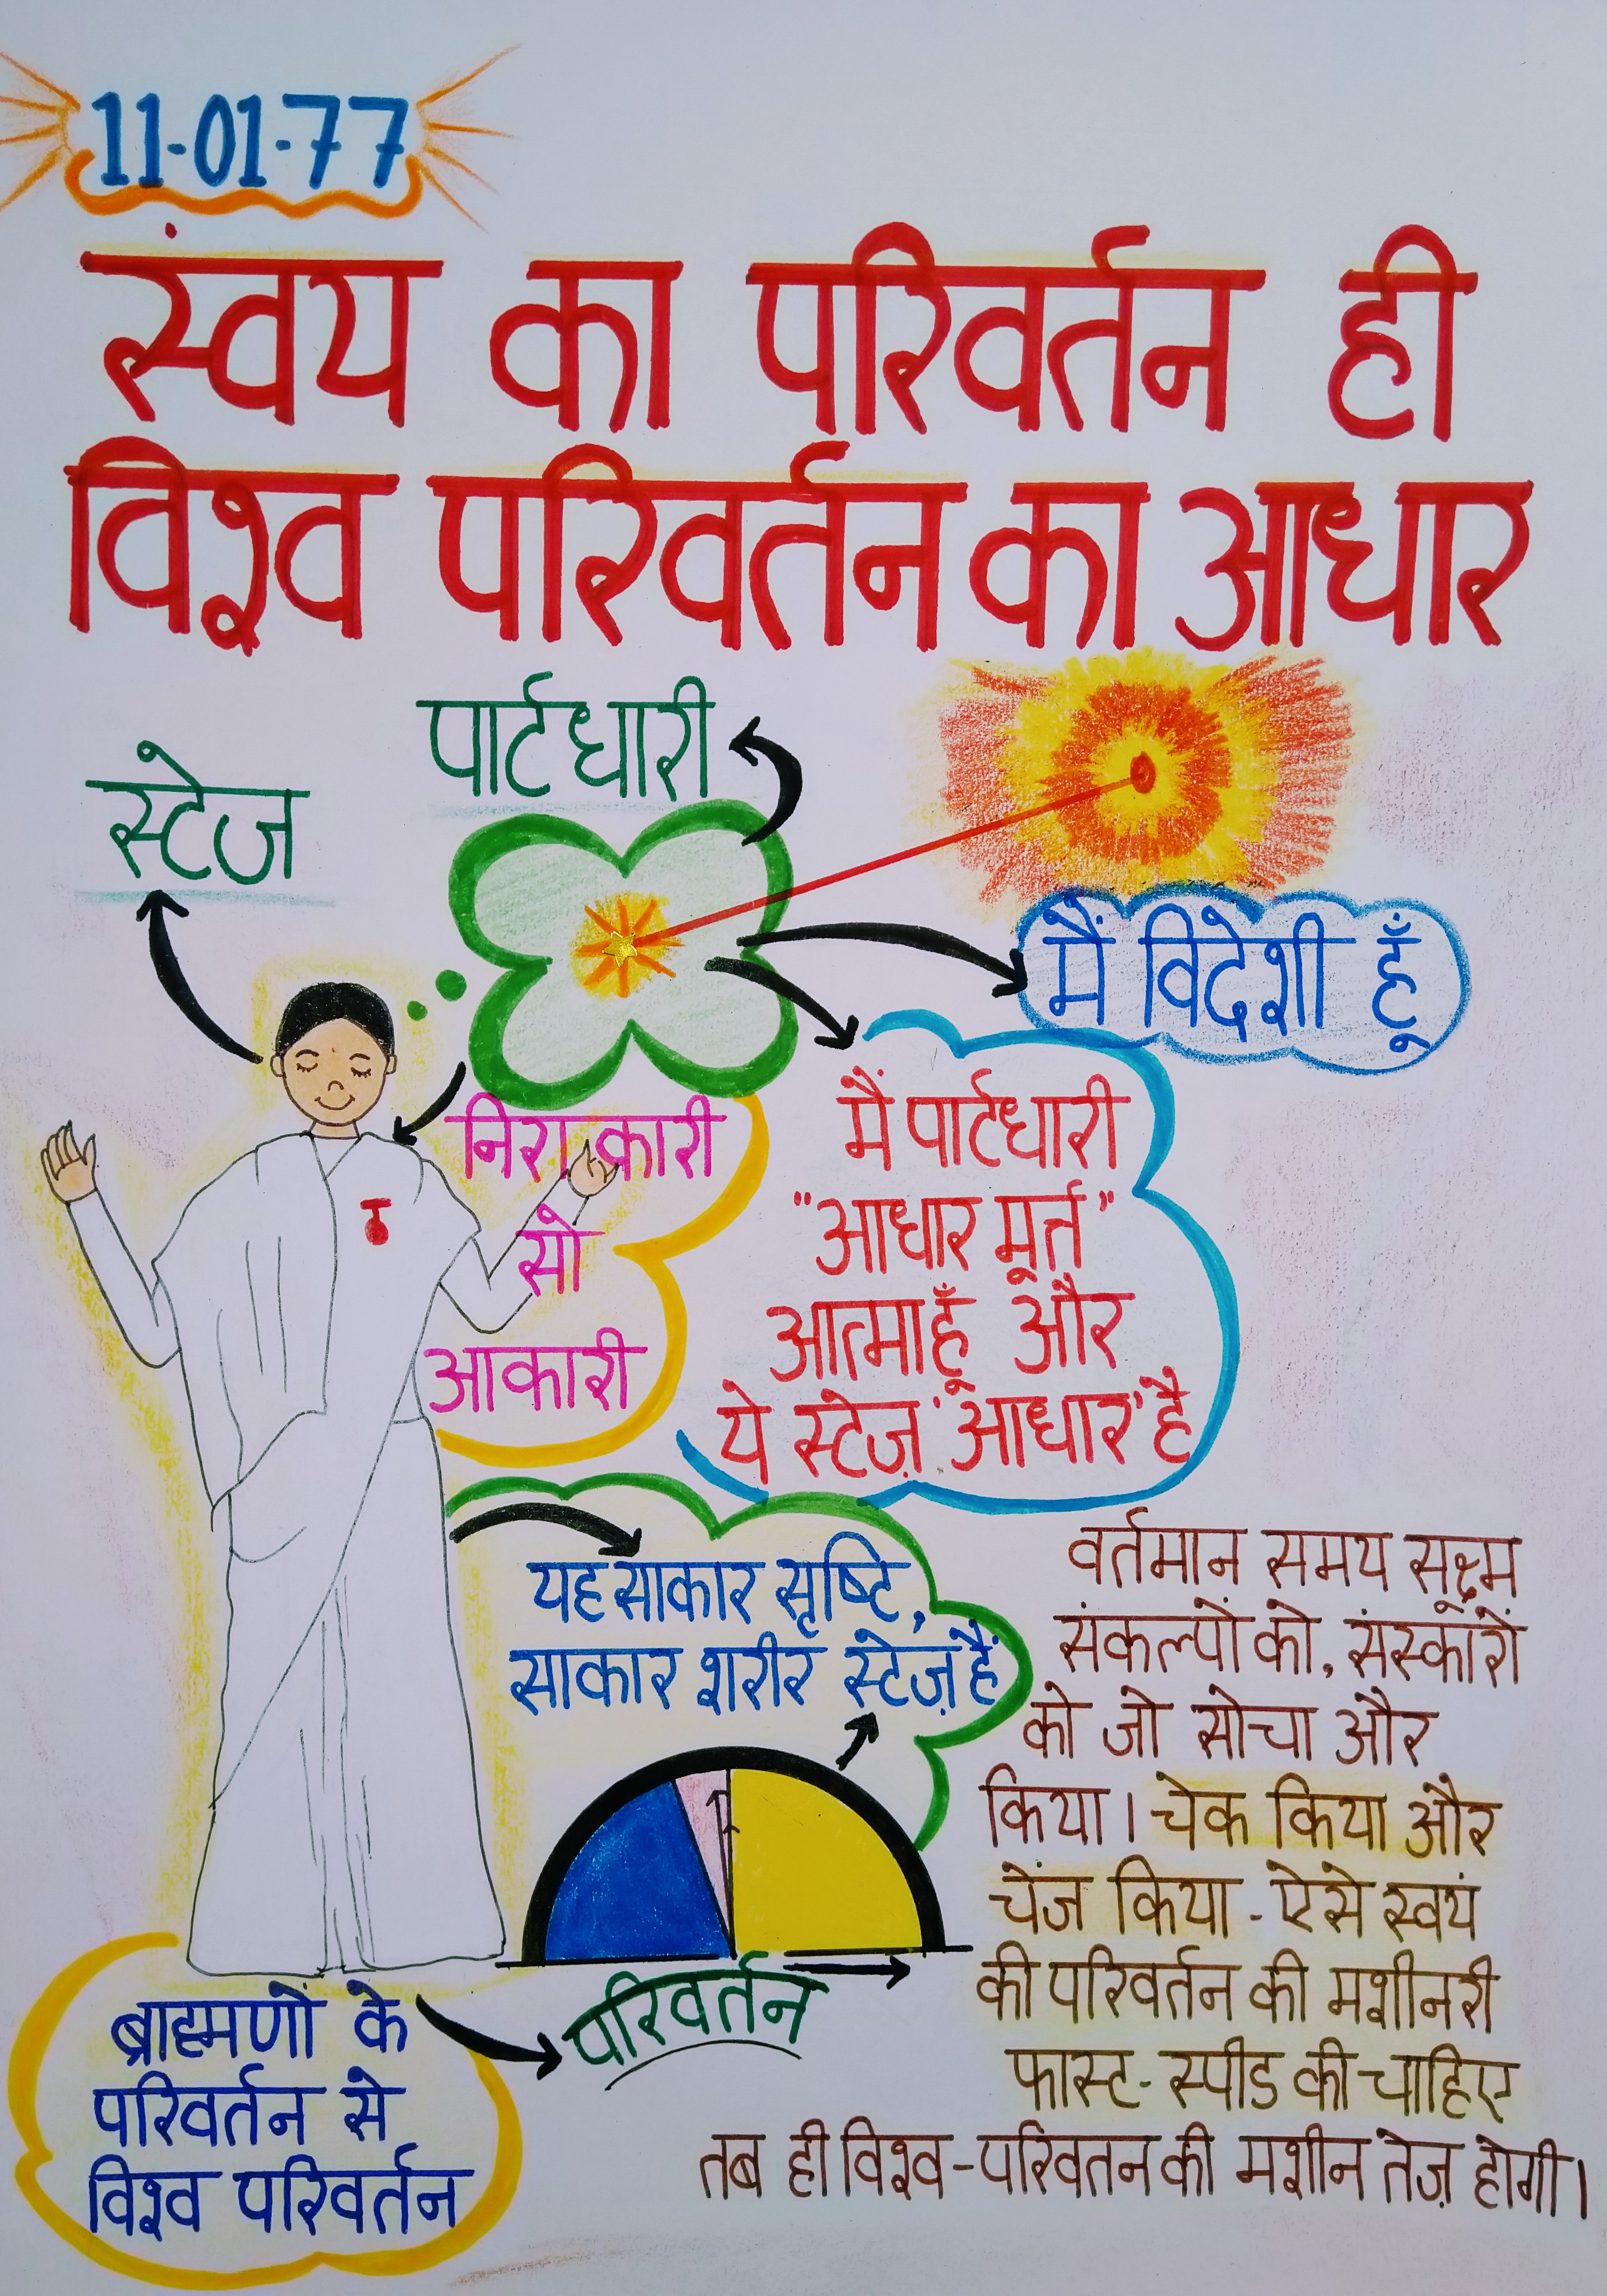 11-01-77
स्वयं का परिवर्तन ही
विश्व परिवर्तन का आधार
पार्टधारी
स्टेज
मैं विदेशी हूँ
निराकारी
सो
आकारी
मैं पार्टधारी
"आधार मूर्त"
आत्मा हूँ और
ये स्टेज़ 'आधार' है
यह साकार सृष्टि,
साकार शरीर स्टेज़ है
वर्तमान समय सूक्ष्म
संकल्पों को, संस्कारों
को जो सोचा और
किया। चेक किया और
चेंज किया - ऐसे स्वयं
की परिवर्तन की मशीनरी
फास्ट-स्पीड की चाहिए
तब ही विश्व-परिवतन की मशीन तेज़ होगी।
परिवर्तन
ब्राह्मणों के
परिवर्तन से
विश्व परिवर्तन